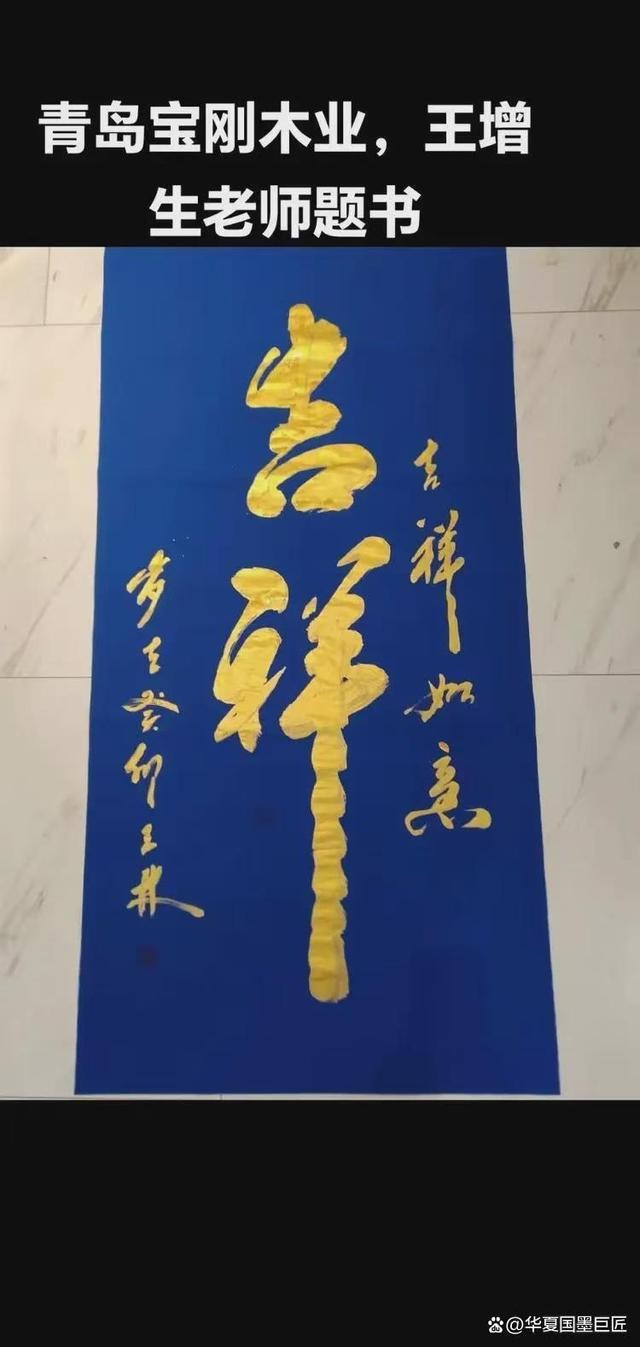 青岛宝刚木业，王增
生老师题书
吉祥如意
吉祥
岁在癸卯王
@华夏国墨巨匠